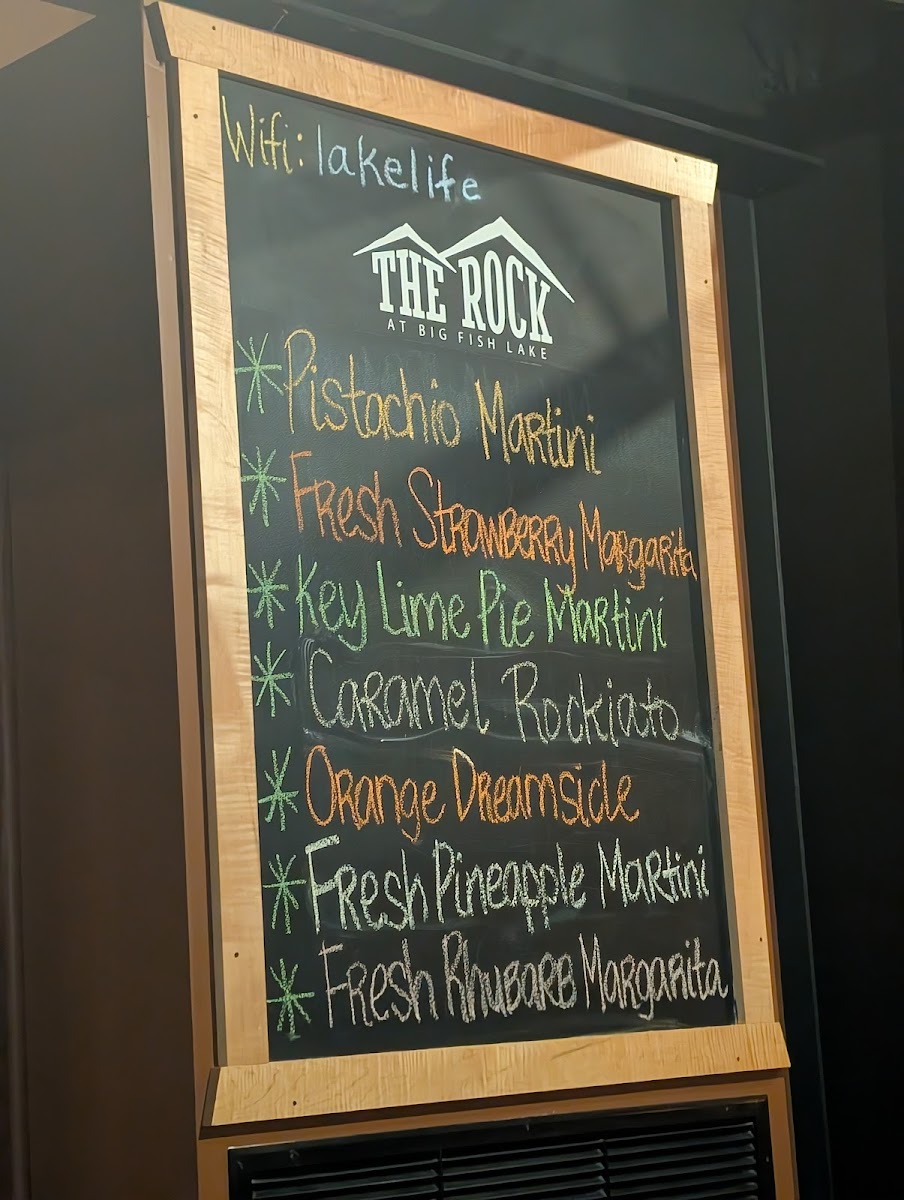 Wifi: lakelife
THE ROCK
AT BIG FISH LAKE
* Pistachio Martini
* Fresh Strawberry Margarita
* Key Lime Pie Martini
* Caramel Rockiato
* Orange Dreamsicle
* Fresh Pineapple Martini
* Fresh Rhubarb Margarita